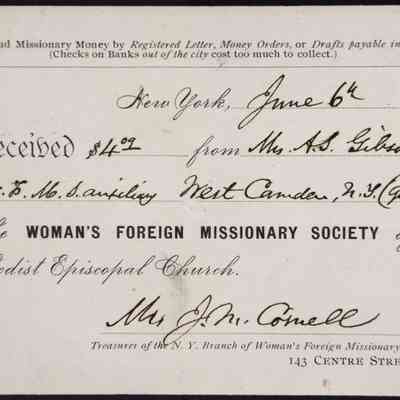 nd Missionary Money by Registered Letter, Money Orders, or Drafts payable in
(Checks on Banks out of the city cost too much to collect.)
New York, June 6th
eceived $4.09 from Mrs A.S. Gibso
F. M. S. auxiliary West Camden, N.Y.
WOMAN'S FOREIGN MISSIONARY SOCIETY
odist Episcopal Church.
Mrs J. M. Cornell
Treasures of the N. Y. Branch of Woman's Foreign Missionary
143 CENTRE STRE